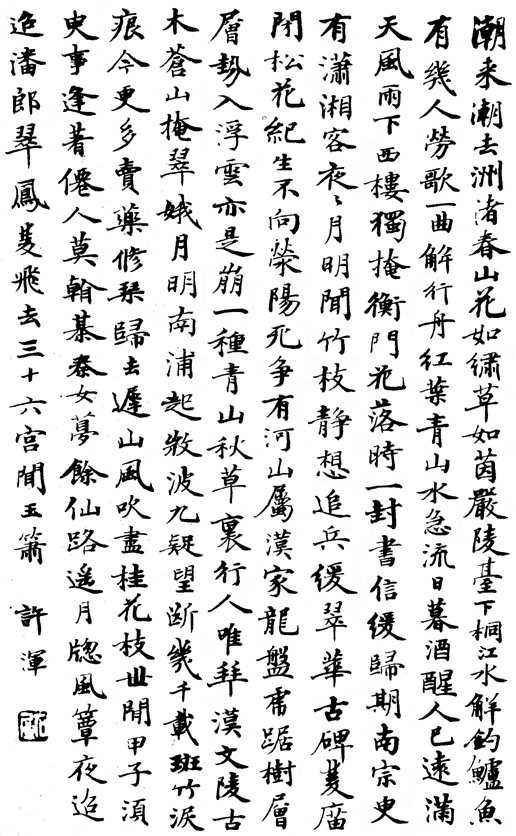 潮来潮去洲渚春山花如繡草如茵嚴陵臺下桐江水解釣鱸魚
有幾人勞歌一曲解行舟紅葉青山水急流日暮酒醒人已遠滿
天風雨下西樓獨掩衡門花落時一封書信緩歸期南宗更
有瀟湘客夜〻月明聞竹枝静想追兵緩翠華古碑荒廟
閉松花紀生不向滎陽死争有河山屬漢家龍盤虎踞樹層
層勢入浮雲亦是崩一種青山秋草裏行人唯拜漢文陵古
木蒼山掩翠〻娥月明南浦起微波九疑望断幾千載斑竹淚
痕今更多賣藥修琴歸去遲山風吹盡桂花枝世間甲子須
臾事逢著僊人莫看棊秦女夢餘仙路遥月牕風簟夜迢
迢潘郎翠鳳雙飛去三十六宮聞玉簫 許渾